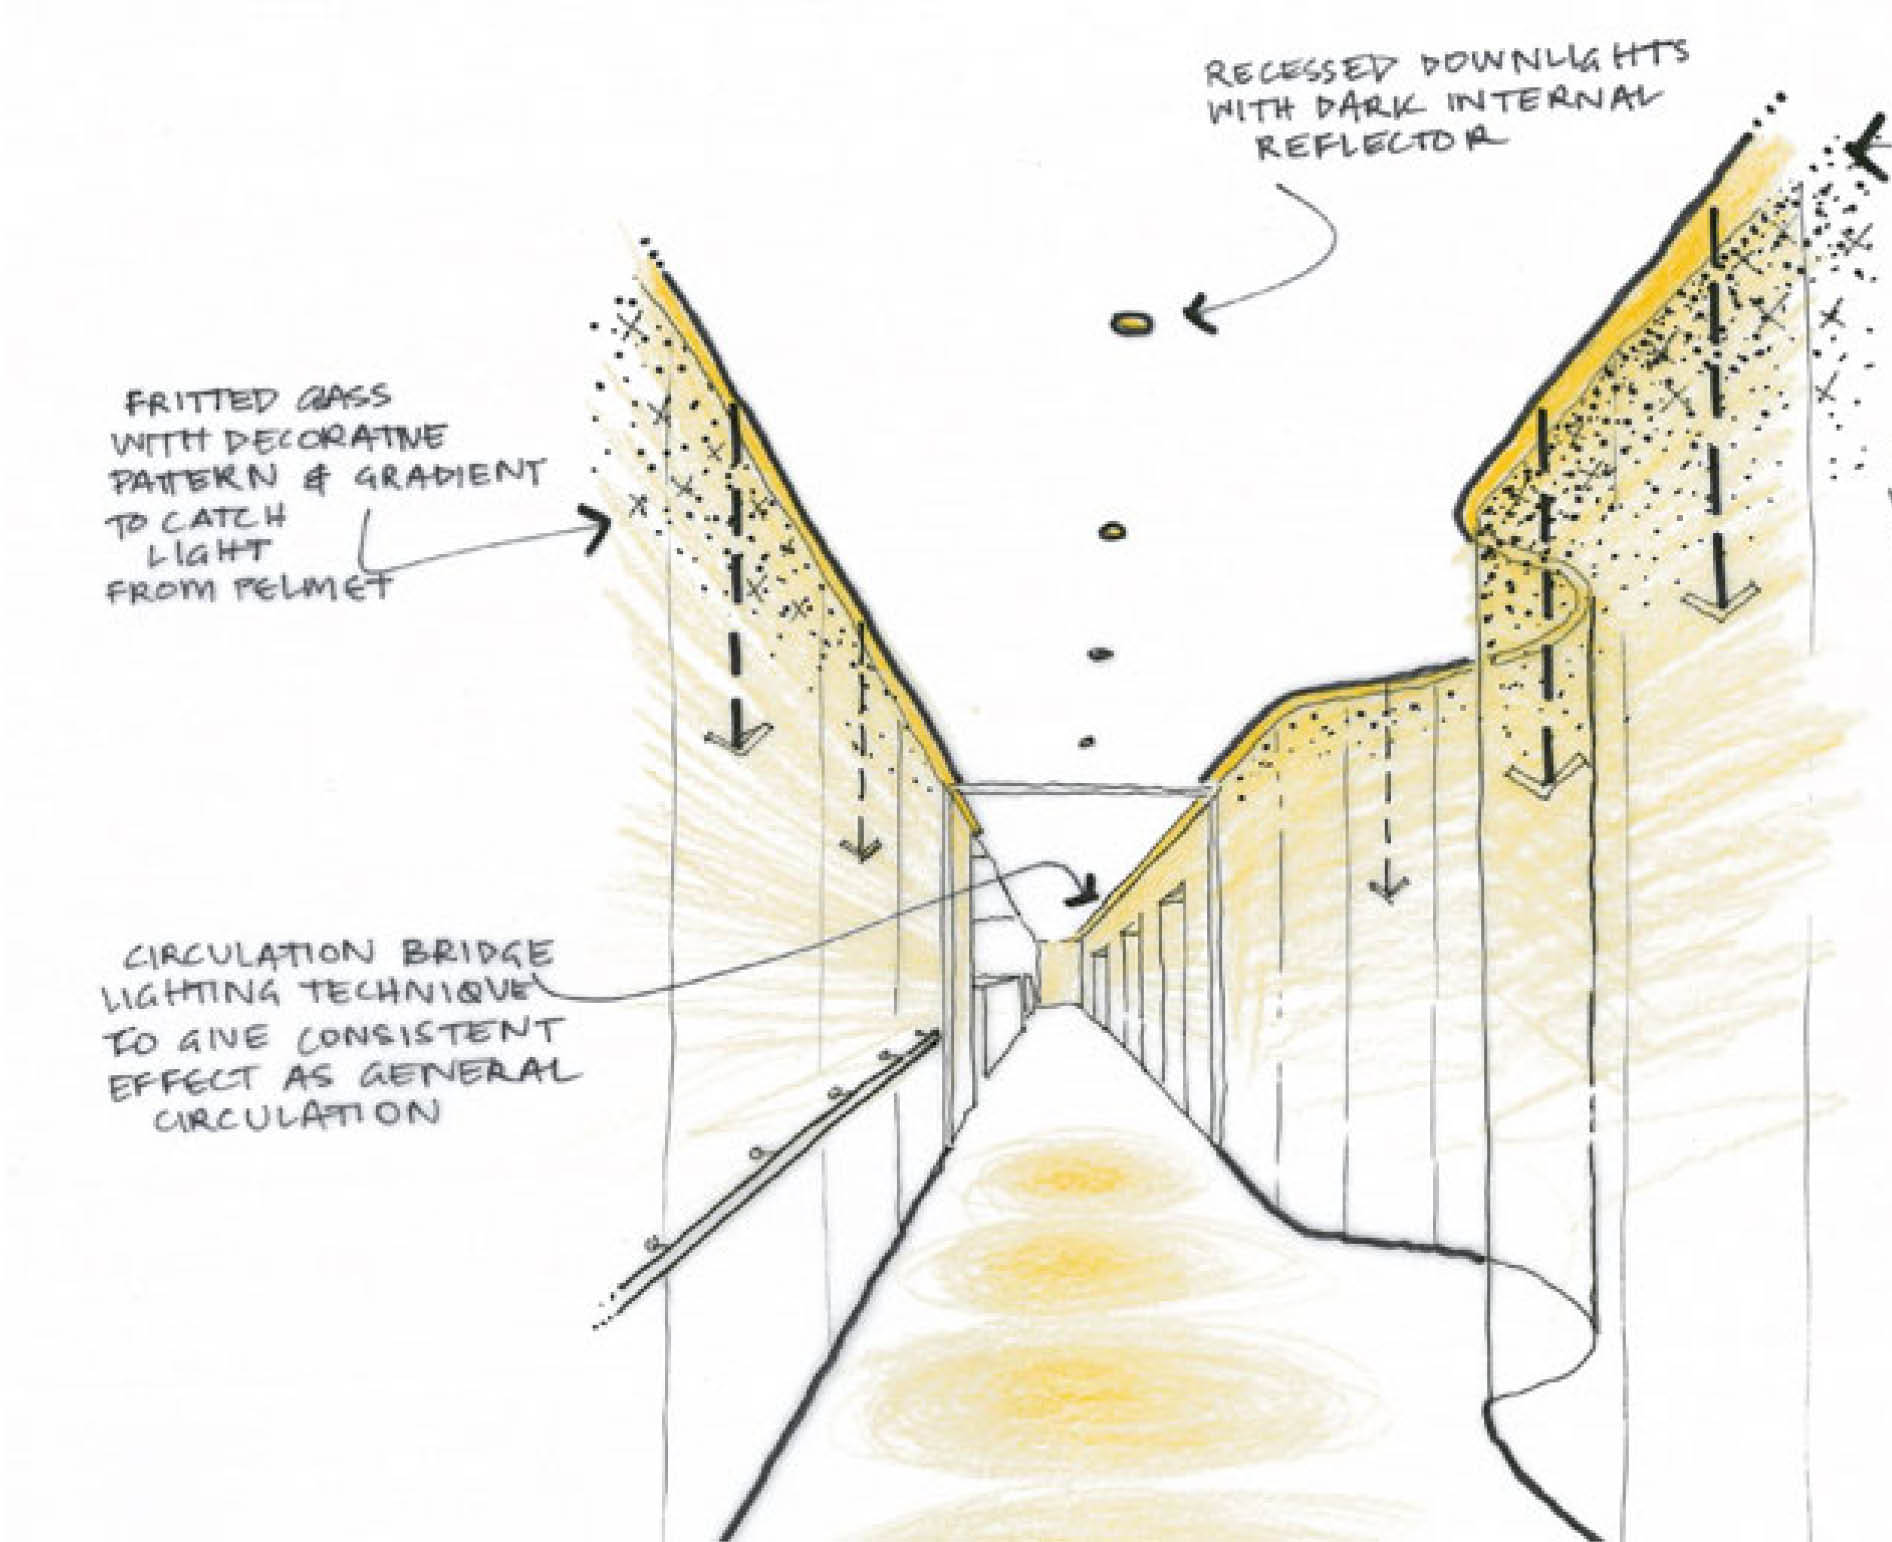 RECESSED DOWNLIGHTS
WITH DARK INTERNAL
REFLECTOR
FRITTED GLASS
WITH DECORATIVE
PATTERN & GRADIENT
TO CATCH
LIGHT
FROM PELMET
CIRCULATION BRIDGE
LIGHTING TECHNIQUE
TO GIVE CONSISTENT
EFFECT AS GENERAL
CIRCULATION